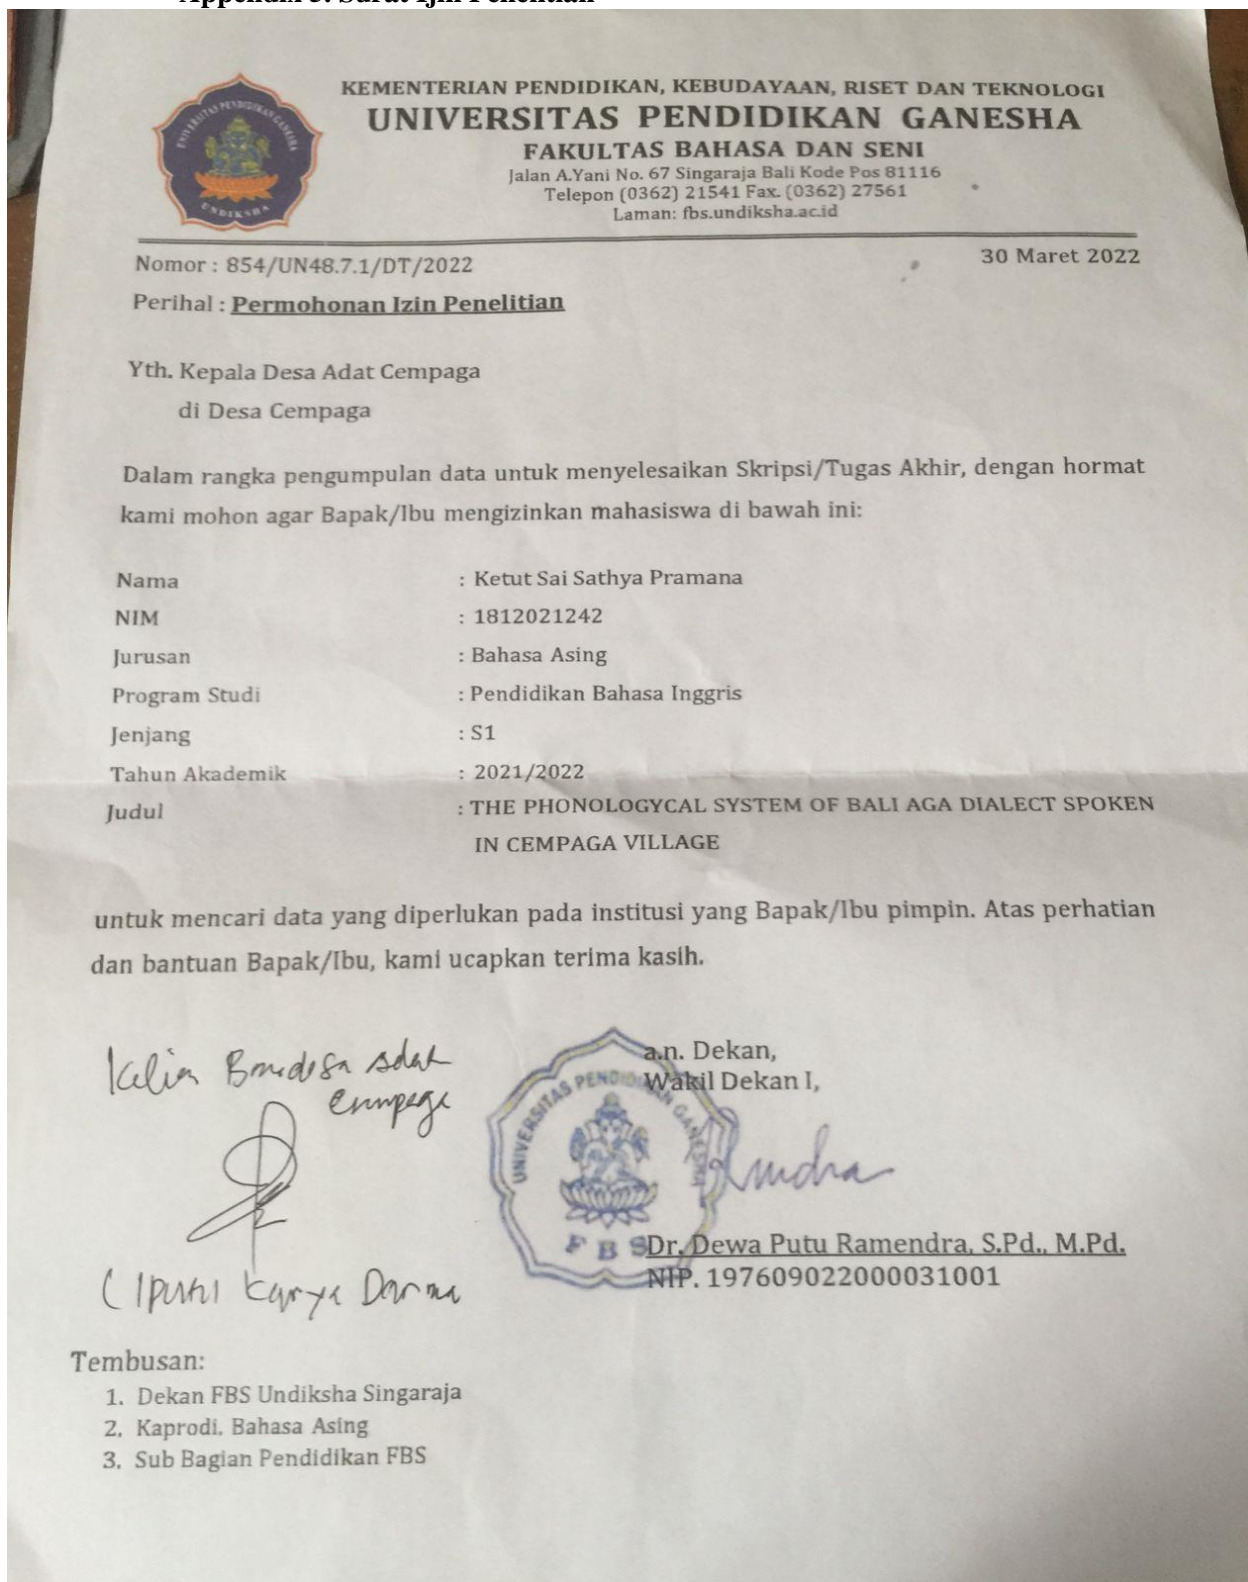 KEMENTERIAN PENDIDIKAN, KEBUDAYAAN, RISET DAN TEKNOLOGI
UNIVERSITAS PENDIDIKAN GANESHA
FAKULTAS BAHASA DAN SENI
Jalan A.Yani No. 67 Singaraja Bali Kode Pos 81116
Telepon (0362) 21541 Fax. (0362) 27561
Laman: fbs.undiksha.ac.id
UNIVERSITAS PENDIDIKAN GANESHA
UNDIKSHA
Nomor : 854/UN48.7.1/DT/2022
30 Maret 2022
Perihal : Permohonan Izin Penelitian
Yth. Kepala Desa Adat Cempaga
di Desa Cempaga
Dalam rangka pengumpulan data untuk menyelesaikan Skripsi/Tugas Akhir, dengan hormat
kami mohon agar Bapak/Ibu mengizinkan mahasiswa di bawah ini:
Nama : Ketut Sai Sathya Pramana
NIM : 1812021242
Jurusan : Bahasa Asing
Program Studi : Pendidikan Bahasa Inggris
Jenjang : S1
Tahun Akademik : 2021/2022
Judul : THE PHONOLOGYCAL SYSTEM OF BALI AGA DIALECT SPOKEN
IN CEMPAGA VILLAGE
untuk mencari data yang diperlukan pada institusi yang Bapak/Ibu pimpin. Atas perhatian
dan bantuan Bapak/Ibu, kami ucapkan terima kasih.
a.n. Dekan,
Wakil Dekan I,
UNIVERSITAS PENDIDIKAN GANESHA
FBS
Dr. Dewa Putu Ramendra, S.Pd., M.Pd.
NIP. 197609022000031001
adat
Karya Darma
Tembusan:
1. Dekan FBS Undiksha Singaraja
2. Kaprodi. Bahasa Asing
3. Sub Bagian Pendidikan FBS